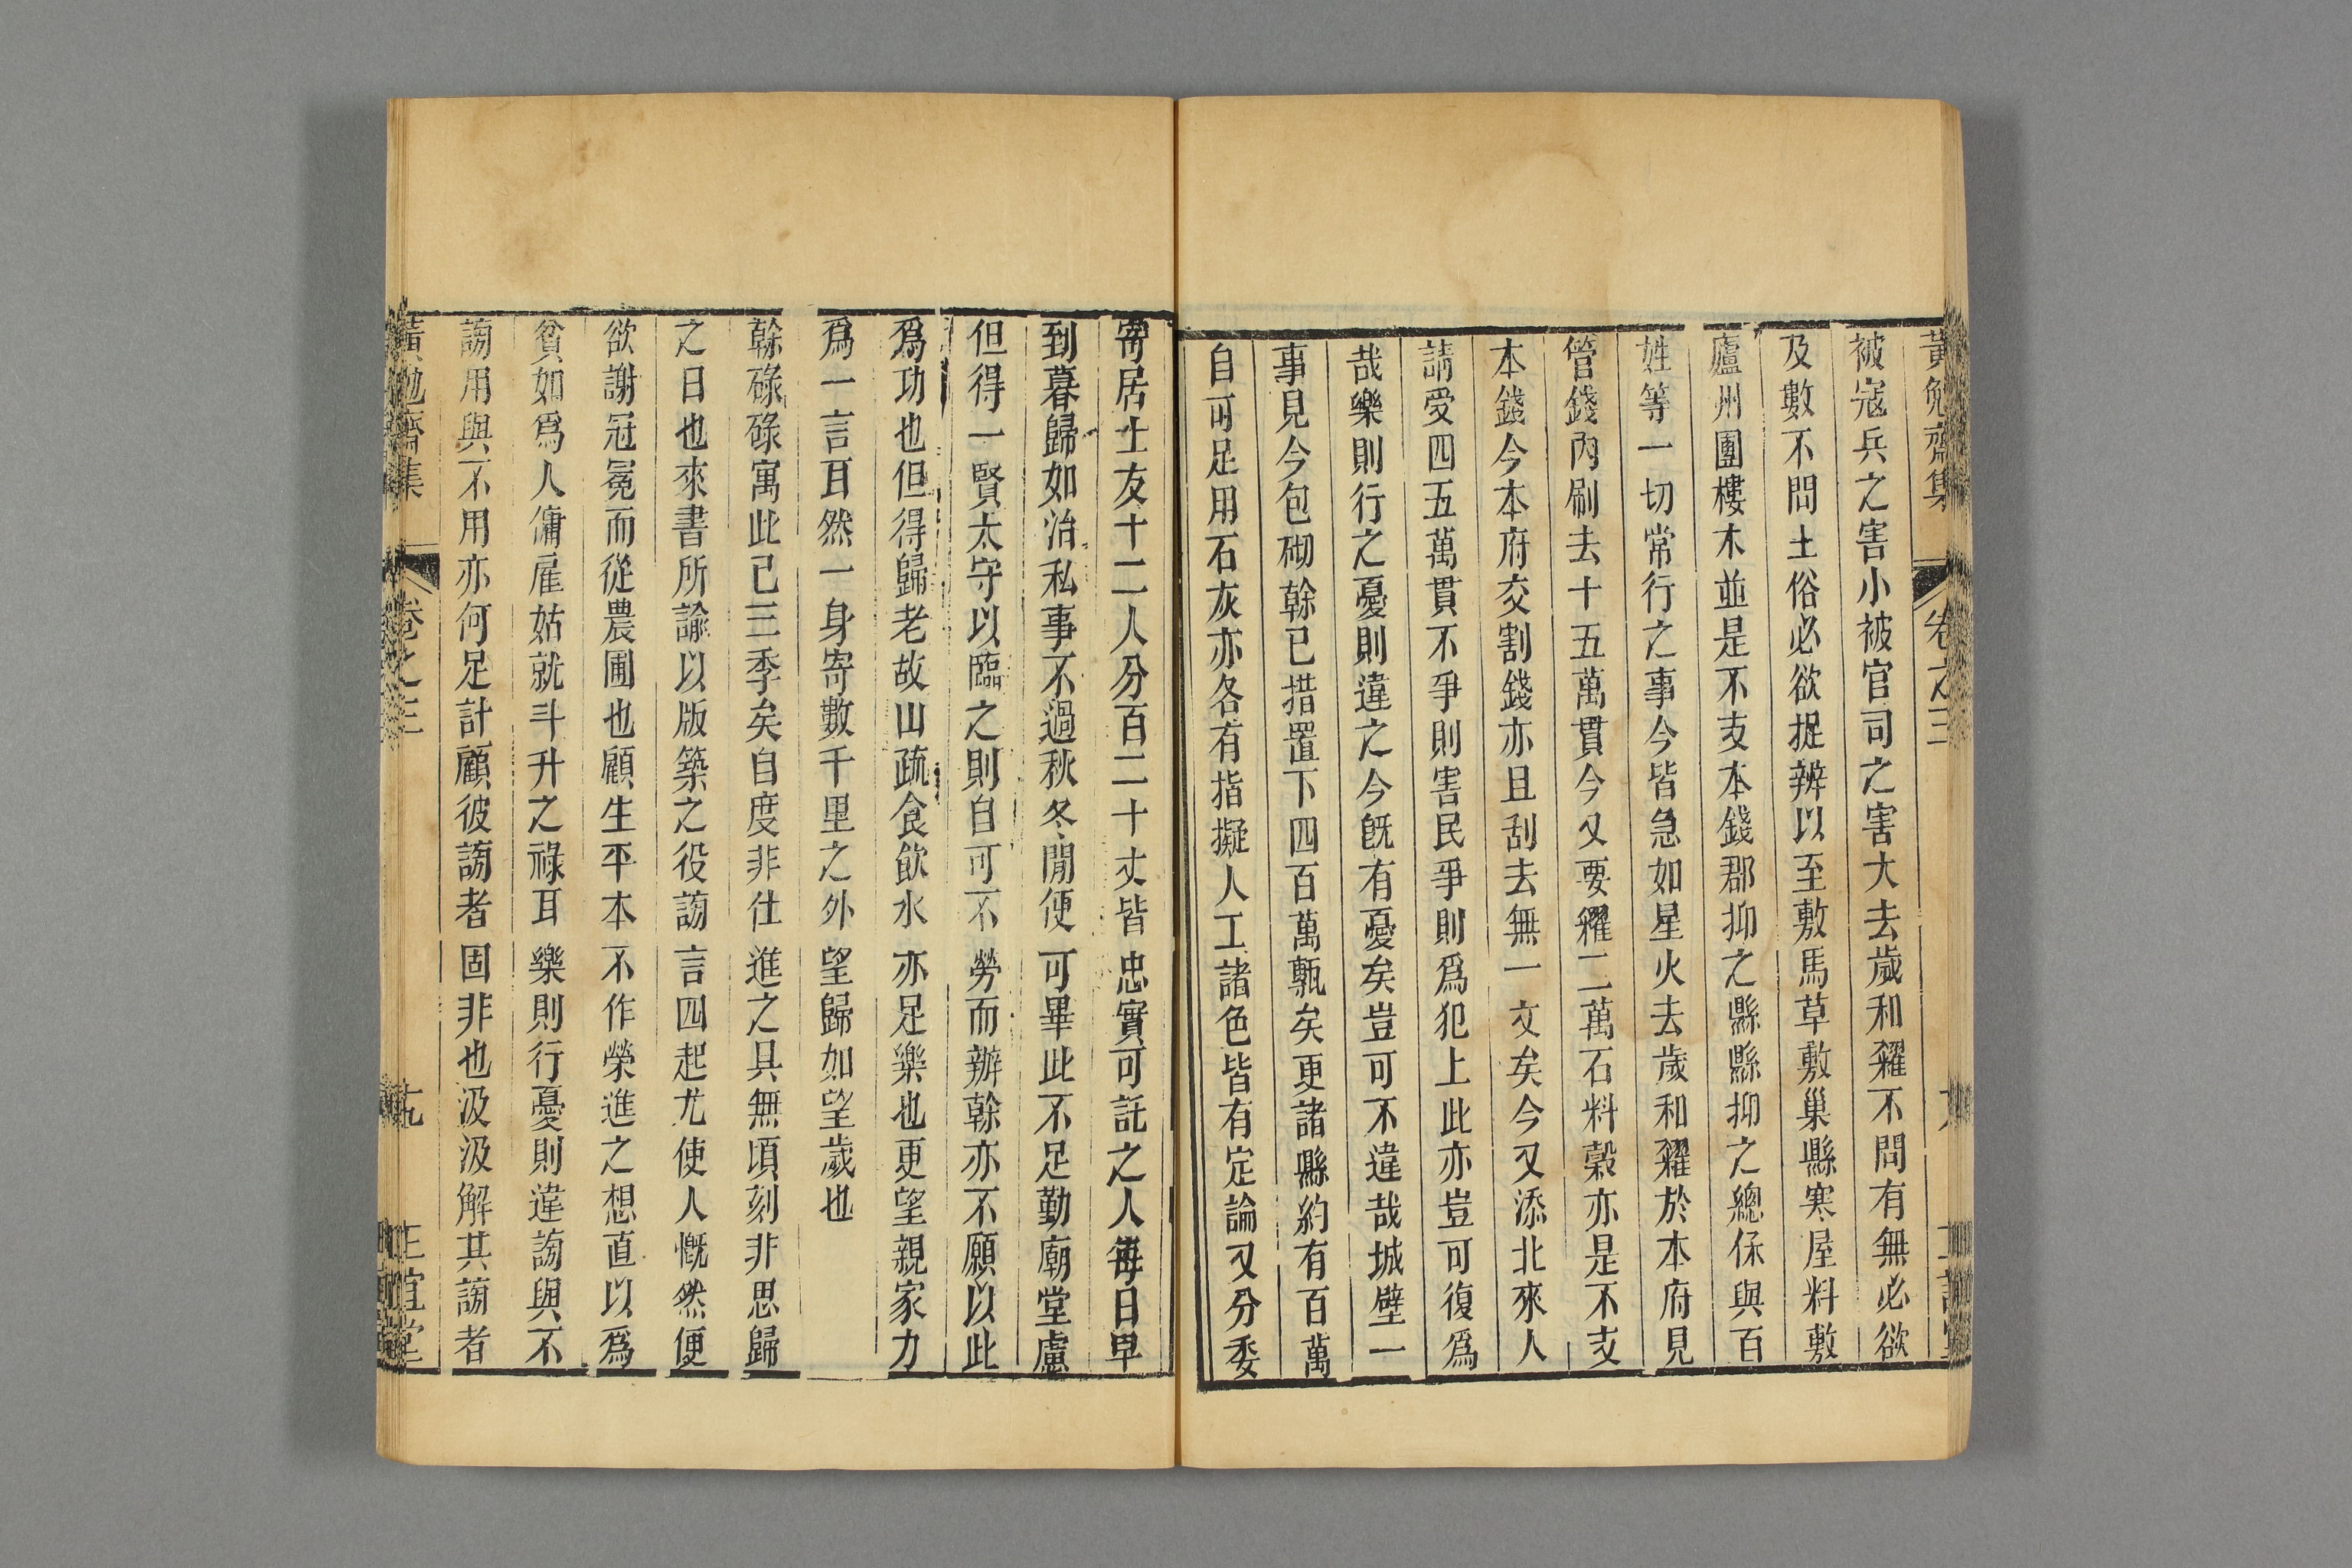 黃勉齋集 卷之三
被寇兵之害小被官司之害大去歲和糴不問有無必欲
及數不問土俗必欲捉辨以至敷馬草敷巢縣寒屋料敷
廬州團樓木並是不支本錢郡抑之縣縣抑之總保與百
姓等一切常行之事今皆急如星火去歲和糴於本府見
管錢內刷去十五萬貫今又要糴二萬石料穀亦是不支
本錢今本府交割錢亦且刮去無一文矣今又添北來人
請受四五萬貫不爭則害民爭則爲犯上此亦豈可復爲
哉樂則行之憂則違之今旣有憂矣豈可不違哉城壁一
事見今包砌榦已措置下四百萬甎矣更諸縣約有百萬
自可足用石灰亦各有指擬人工諸色皆有定論又分委
寄居士友十二人分百二十丈皆忠實可託之人每日早
到暮歸如治私事不過秋冬閒便可畢此不足勤廟堂慮
但得一賢太守以臨之則自可不勞而辦榦亦不願以此
爲功也但得歸老故山疏食飮水亦足樂也更望親家力
爲一言耳然一身寄數千里之外望歸如望歲也
榦碌碌寓此已三季矣自度非仕進之具無頃刻非思歸
之日也來書所諭以版築之役謗言四起尤使人慨然便
欲謝冠冕而從農圃也顧生平本不作榮進之想直以爲
貧如爲人傭雇姑就斗升之祿耳樂則行憂則違謗與不
謗用與不用亦何足計顧彼謗者固非也汲汲解其謗者
黃勉齋集 卷之三 十九 正誼堂